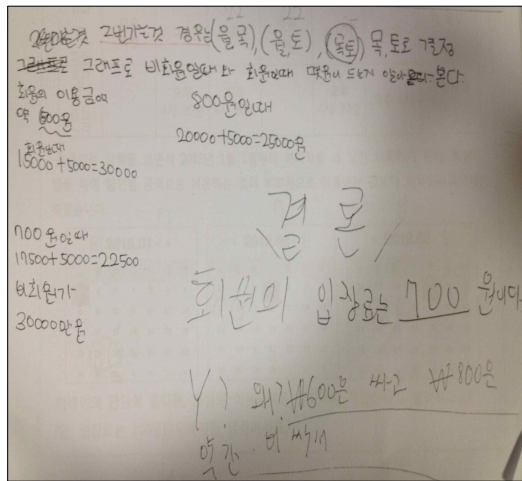 2번가는것 경우는(월목),(월토),(목토) 목,토로 결정
그래프로 비회원일때와 회원일때 몇원이 드는지 알아본다.
회원의 이용금액
약 600원
800원일때
20000+5000=25000원
회원일때
15000+5000=30000
결론
700원일때
17500+5000=22500
비회원가
30000만원
회원의 입장료는 700 원이다
Y? 왜? ₩600은 싸고 ₩800은
약간 비싸서